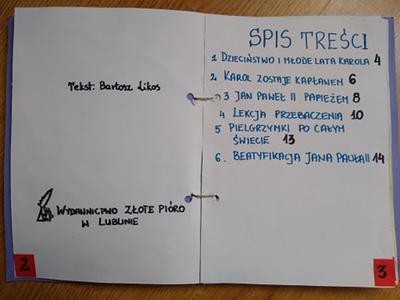 Tekst: Bartosz Likos
WYDAWNICTWO ZŁOTE PIÓRO
W LUBLINIE
2
SPIS TREŚCI
1 DZIECIŃSTWO I MŁODE LATA KAROLA 4
2 KAROL ZOSTAJE KAPŁANEM 6
3 JAN PAWEŁ II PAPIEŻEM 8
4 LEKCJA PRZEBACZENIA 10
5 PIELGRZYMKI PO CAŁYM
ŚWIECIE 13
6. BEATYFIKACJA JANA PAWŁA II 14
3